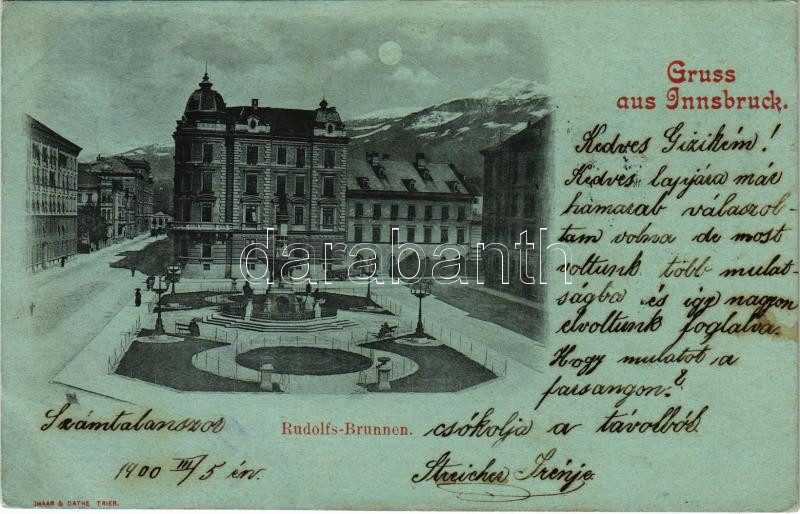 Gruss
aus Innsbruck.
Kedves Gizikém!
Kedves lapjára már
hamarab válaszol-
tam volna de most
voltunk több mulat-
ságba és igy nagyon
elvoltunk foglalva.
Hogy mulatot a
farsangon?
Számtalanszor
Rudolfs-Brunnen.
csókolja a távolból
1900 III/5 én.
Streicher Irénje
MAAR & DATHE TRIER.
darabanth